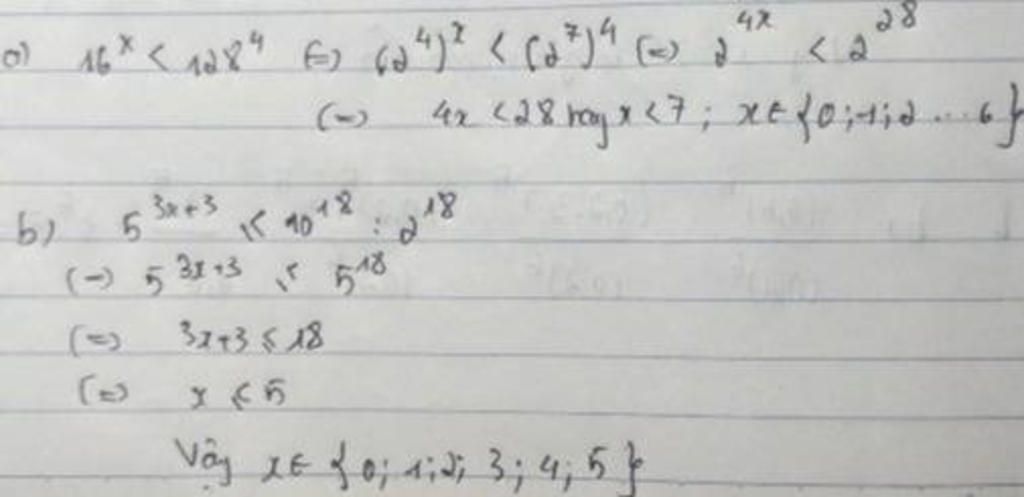 a) 16^x < 128^4 (=) (2^4)^x < (2^7)^4 (=) 2^4x < 2^28
(=) 4x < 28 hay x < 7 ; x ∈ {0 ; 1 ; 2 ... 6}
b) 5^3x+3 ≤ 10^18 : 2^18
(=) 5^3x+3 ≤ 5^18
(=) 3x+3 ≤ 18
(=) x ≤ 5
Vậy x ∈ {0; 1; 2; 3; 4; 5}